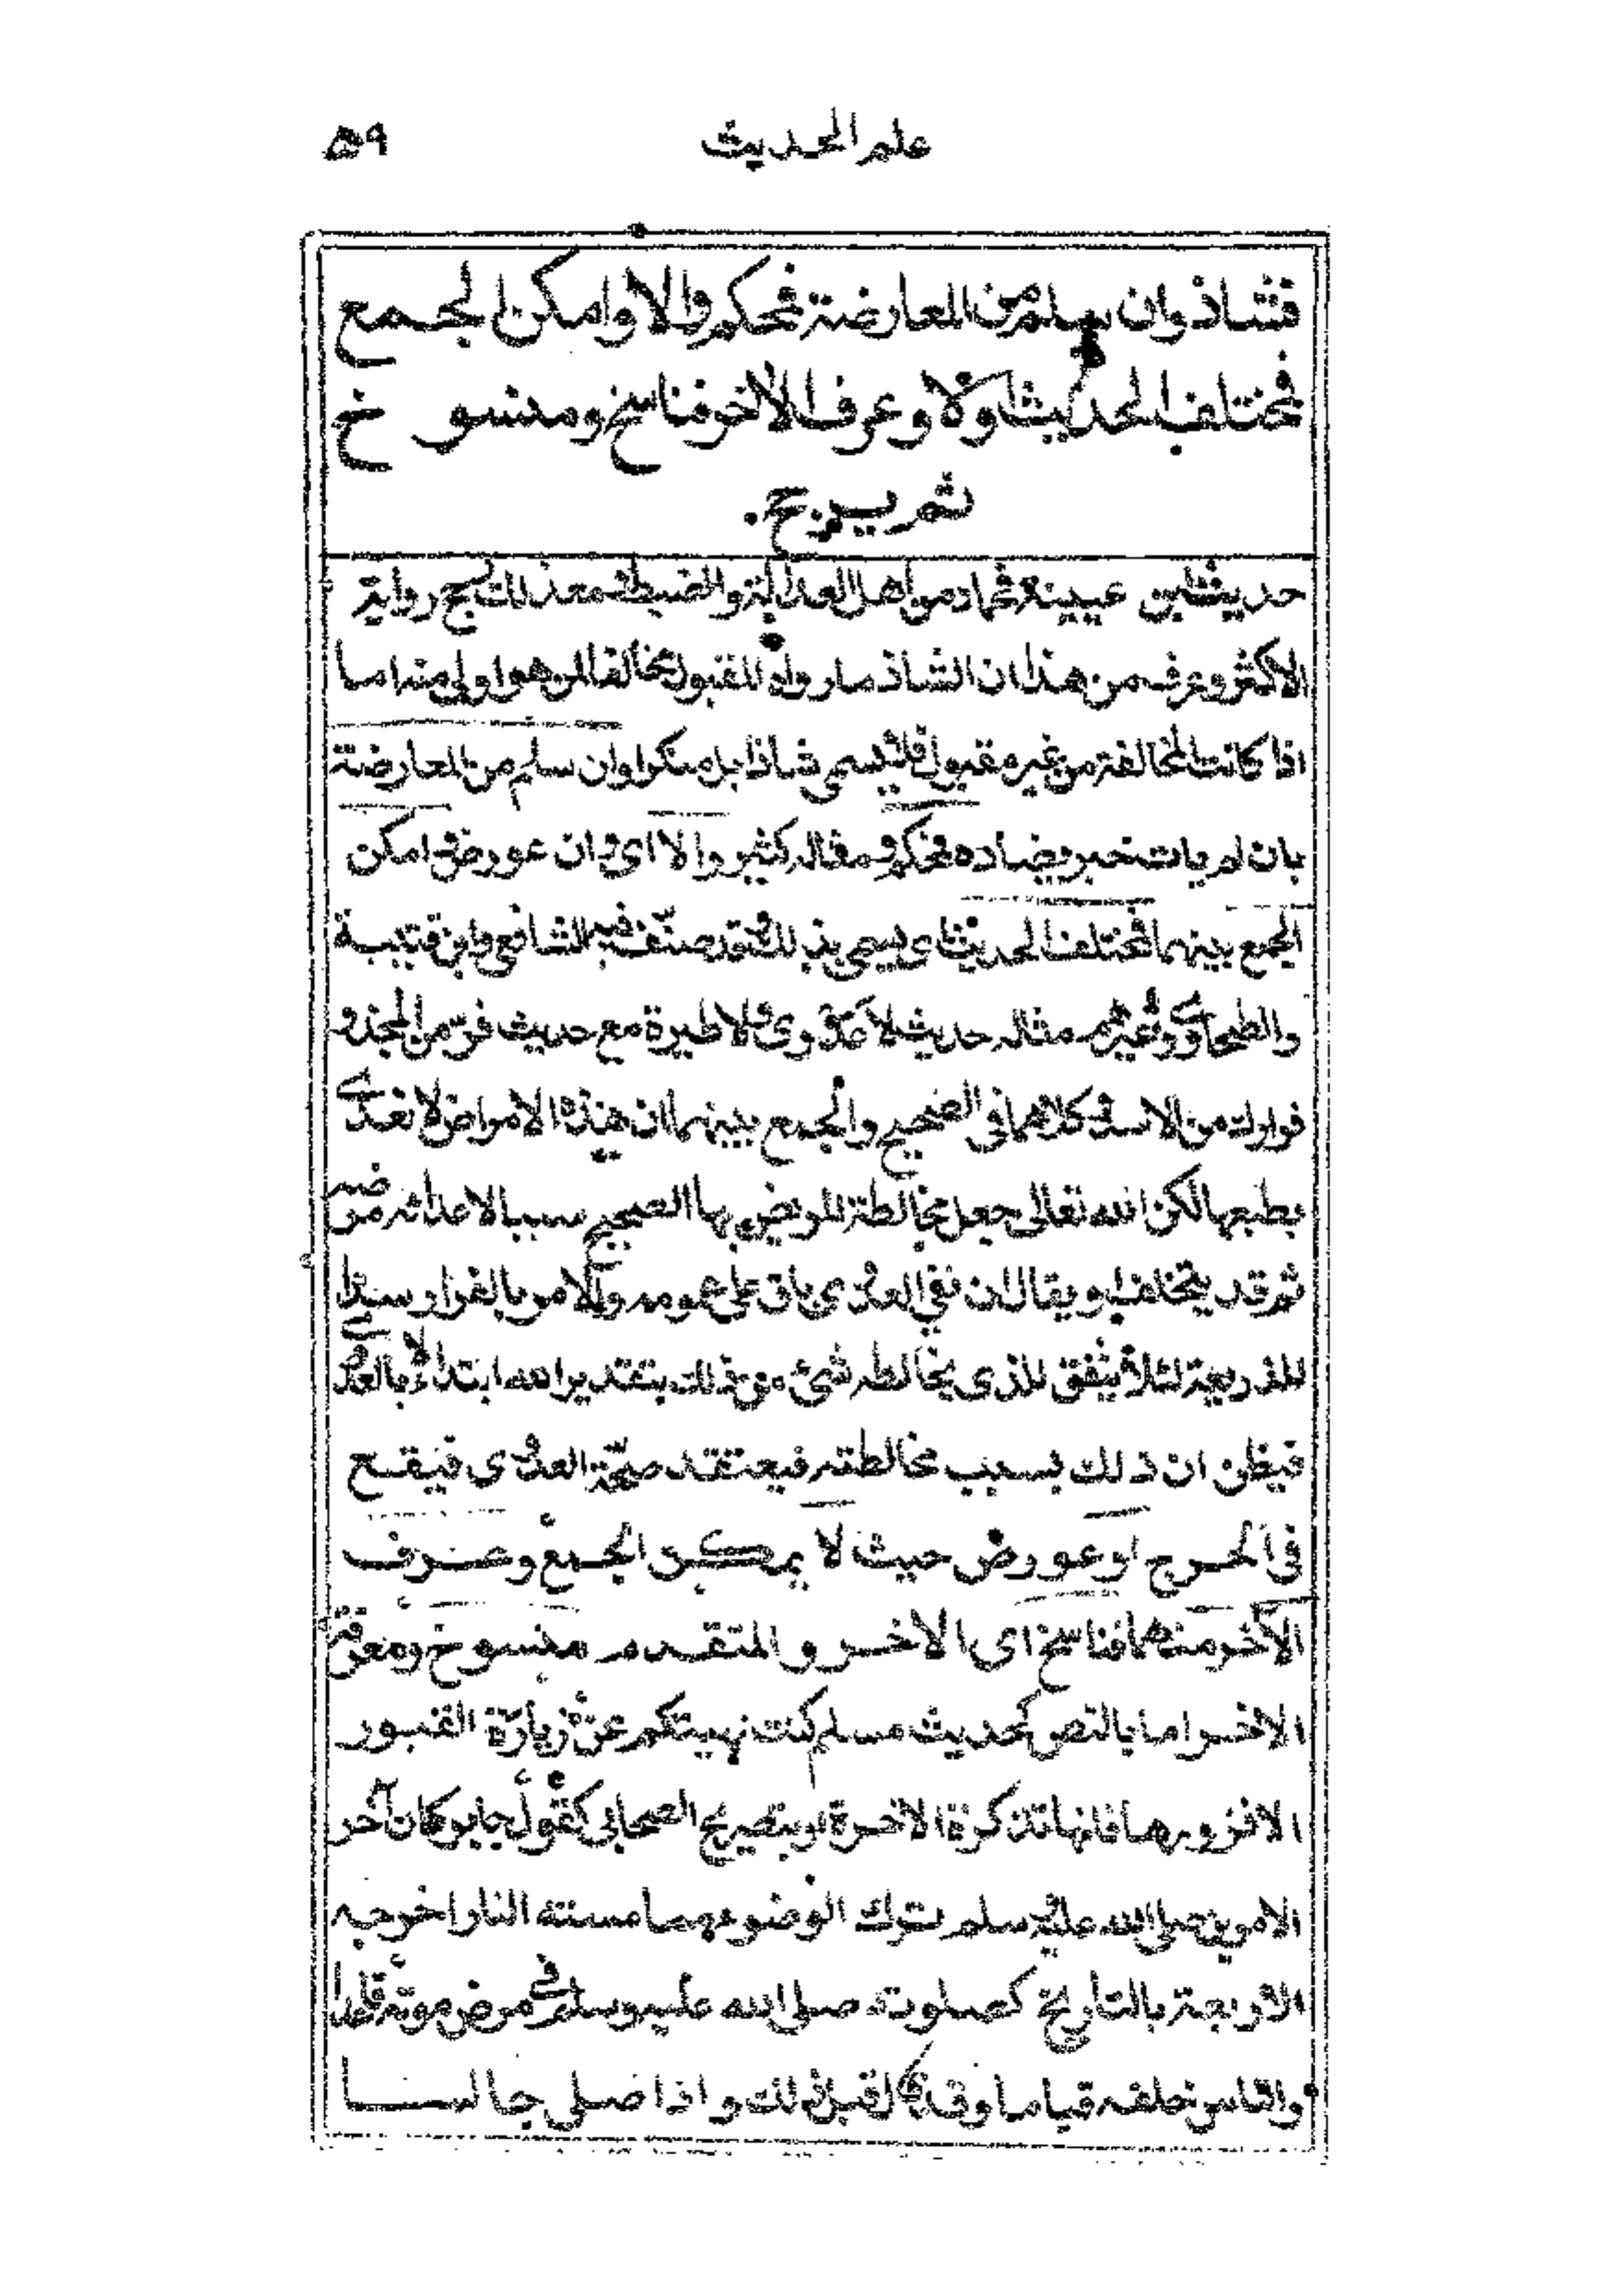 علم الحديث ٥٩
فشاذ وان سلم من المعارضة فمحكم والا وامكن الجمع
فمختلف الحديث اولا وعرف الآخر فناسخ ومنسوخ
ثم يرجح.
حديث ابن عيينة فحماد من اهل العدالة والضبط ومع ذلك رجح رواية
الاكثر وعرف من هذا ان الشاذ ما رواه المقبول مخالفا لمن هو اولى منه اما
اذا كانت المخالفة من غير مقبول فلا يسمى شاذا بل منكرا وان سلم من المعارضة
بان لم يات خبر يضاده فمحكم ومثاله كثير والا اى وان عورض وامكن
الجمع بينهما فمختلف الحديث اى يسمى بذلك وقد صنف فيه الشافعى وابن قتيبة
والطحاوى وغيرهم مثاله حديث لا عدوى ولا طيرة مع حديث فر من المجذوم
فرارك من الاسد وكلاهما فى الصحيح والجمع بينهما ان هذه الامراض لا تعدى
بطبعها لكن الله تعالى جعل مخالطة المريض بها الصحيح سببا لاعدائه مرضه
ثم قد يتخلف او يقال ان نفى العدوى باق على عمومه والامر بالفرار سدا
للذريعة لئلا يتفق للذى يخالطه شئ من ذلك بتقدير الله ابتداء لا بالعدوى
فيظن ان ذلك بسبب مخالطته فيعتقد صحة العدوى فيقع
فى الحرج او عورض حيث لا يمكن الجمع وعرف
الآخر منهما فناسخ اى الاخر والمتقدم منسوخ ومعرفة
الاخر اما بالنص كحديث مسلم كنت نهيتكم عن زيارة القبور
الا فزوروها فانها تذكرة الآخرة او بتصريح الصحابى كقول جابر كان آخر
الامرين صلى الله عليه وسلم ترك الوضوء مما مسته النار اخرجه
الاربعة او بالتاريخ كصلوته صلى الله عليه وسلم فى مرض موته قاعدا
والناس خلفه قياما وقد قال قبل ذلك واذا صلى جالسا